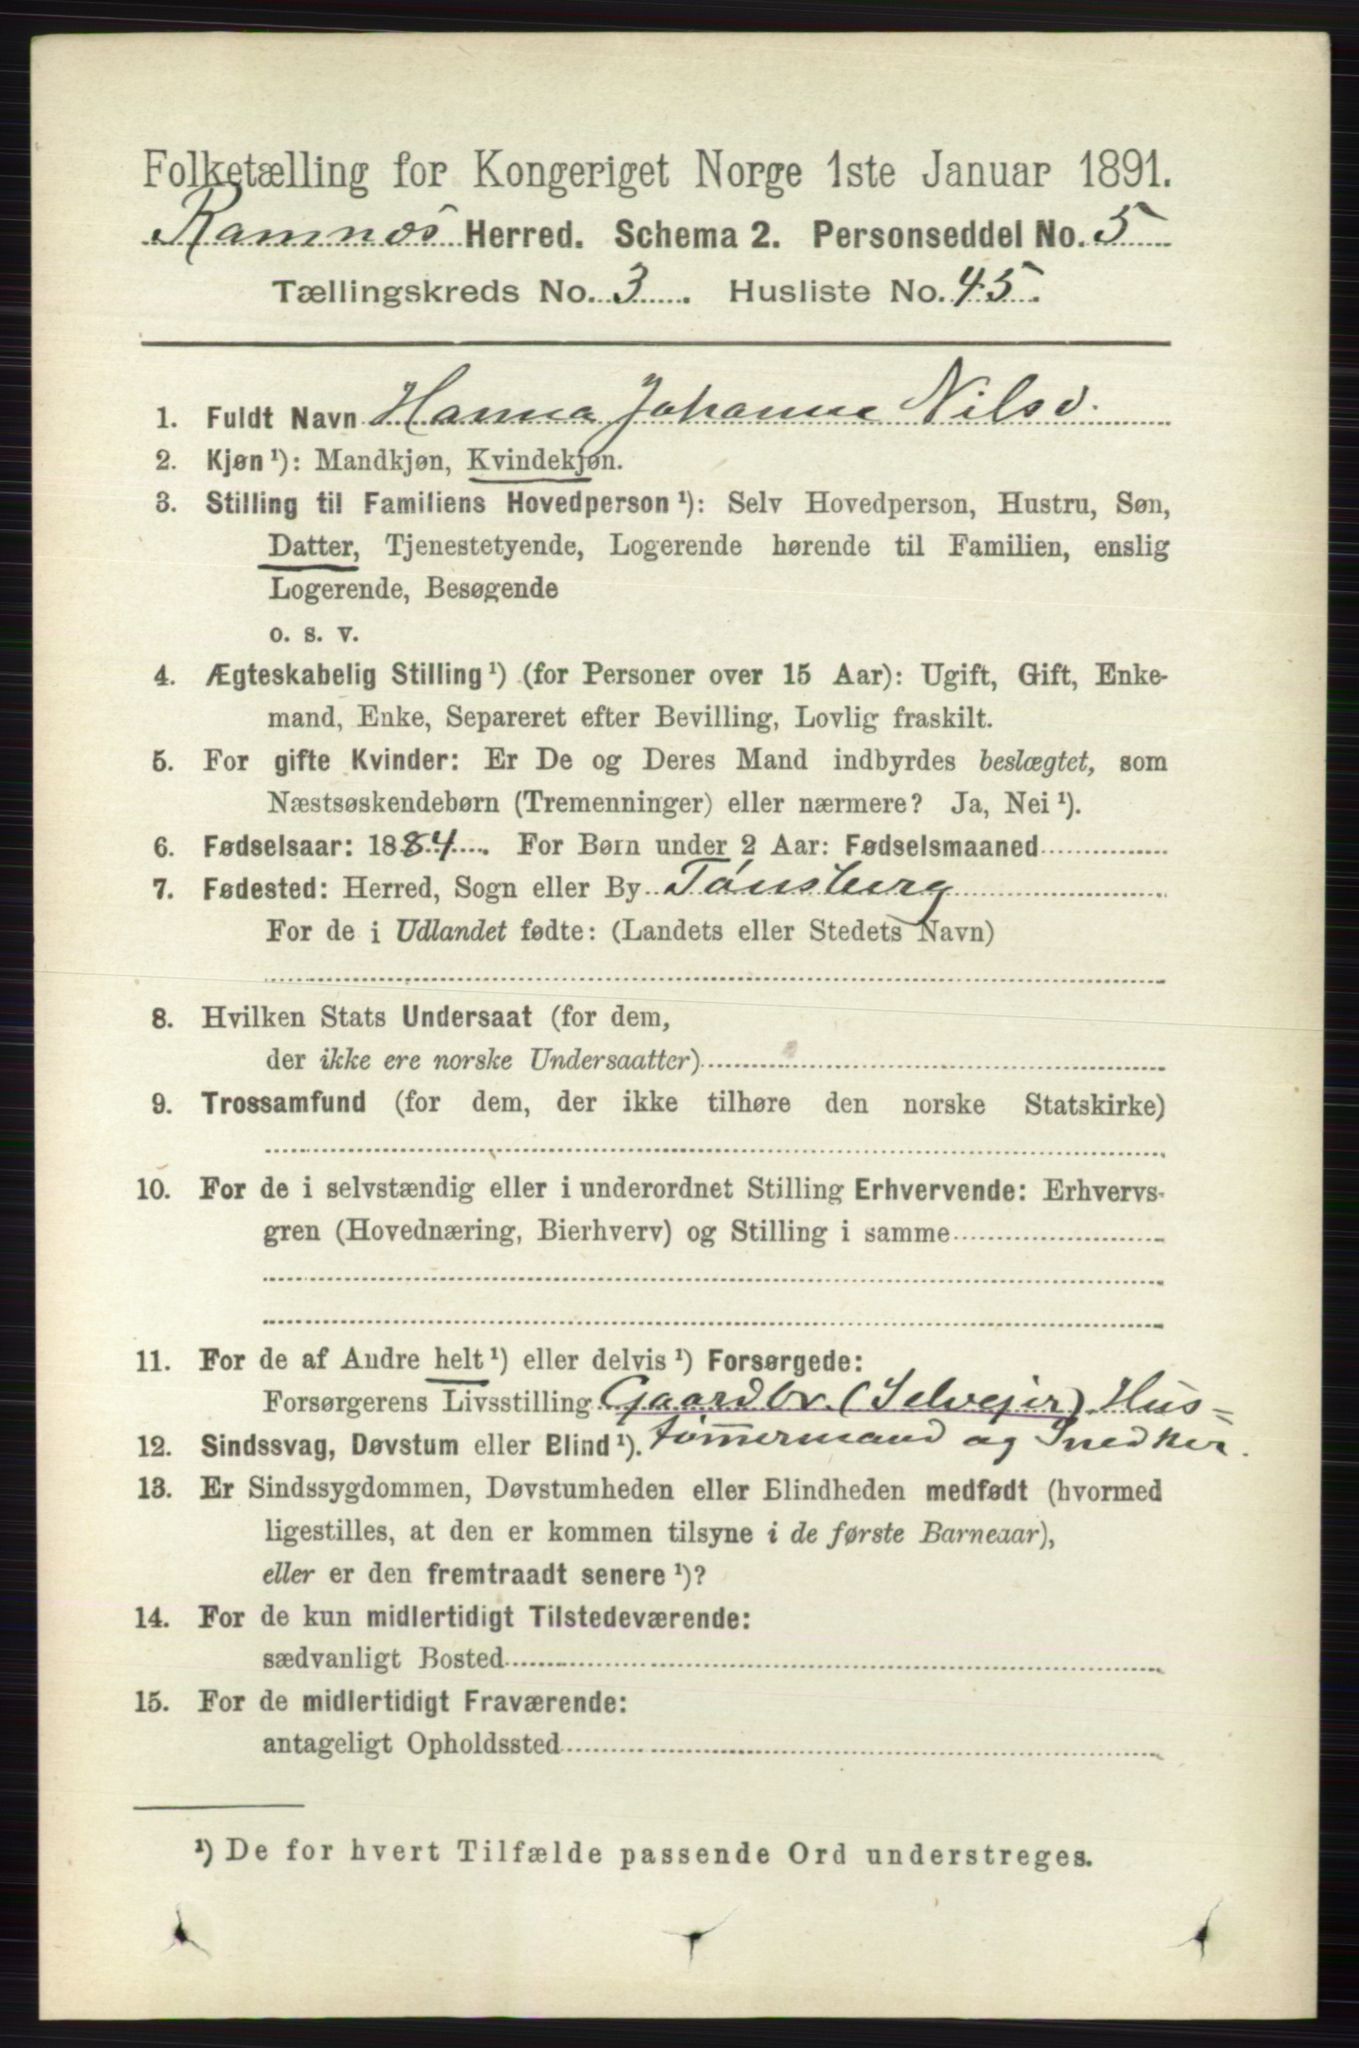 Folketælling for Kongeriget Norge 1ste Januar 1891.
Ramnæs Herred. Schema 2. Personseddel No. 5
Tællingskreds No. 3. Husliste No. 45.
1. Fuldt Navn Hanna Johanne Nilsd.
2. Kjøn ¹): Mandkjøn, Kvindekjøn.
3. Stilling til Familiens Hovedperson ¹): Selv Hovedperson, Hustru, Søn,
Datter, Tjenestetyende, Logerende hørende til Familien, enslig
Logerende, Besøgende
o. s. v.
4. Ægteskabelig Stilling ¹) (for Personer over 15 Aar): Ugift, Gift, Enke-
mand, Enke, Separeret efter Bevilling, Lovlig fraskilt.
5. For gifte Kvinder: Er De og Deres Mand indbyrdes beslægtet, som
Næstsøskendebørn (Tremenninger) eller nærmere? Ja, Nei ¹).
6. Fødselsaar: 1884. For Børn under 2 Aar: Fødselsmaaned
7. Fødested: Herred, Sogn eller By Tønsberg
For de i Udlandet fødte: (Landets eller Stedets Navn)
8. Hvilken Stats Undersaat (for dem,
der ikke ere norske Undersaatter)
9. Trossamfund (for dem, der ikke tilhøre den norske Statskirke)
10. For de i selvstændig eller i underordnet Stilling Erhvervende: Erhvervs-
gren (Hovednæring, Bierhverv) og Stilling i samme
11. For de af Andre helt ¹) eller delvis ¹) Forsørgede:
Forsørgerens Livsstilling Gaardbr. (Selvejer) Hus=
12. Sindssvag, Døvstum eller Blind ¹). tømmermand og Snedker.
13. Er Sindssygdommen, Døvstumheden eller Blindheden medfødt (hvormed
ligestilles, at den er kommen tilsyne i de første Barneaar),
eller er den fremtraadt senere ¹)?
14. For de kun midlertidigt Tilstedeværende:
sædvanligt Bosted
15. For de midlertidigt Fraværende:
antageligt Opholdssted
¹) De for hvert Tilfælde passende Ord understreges.